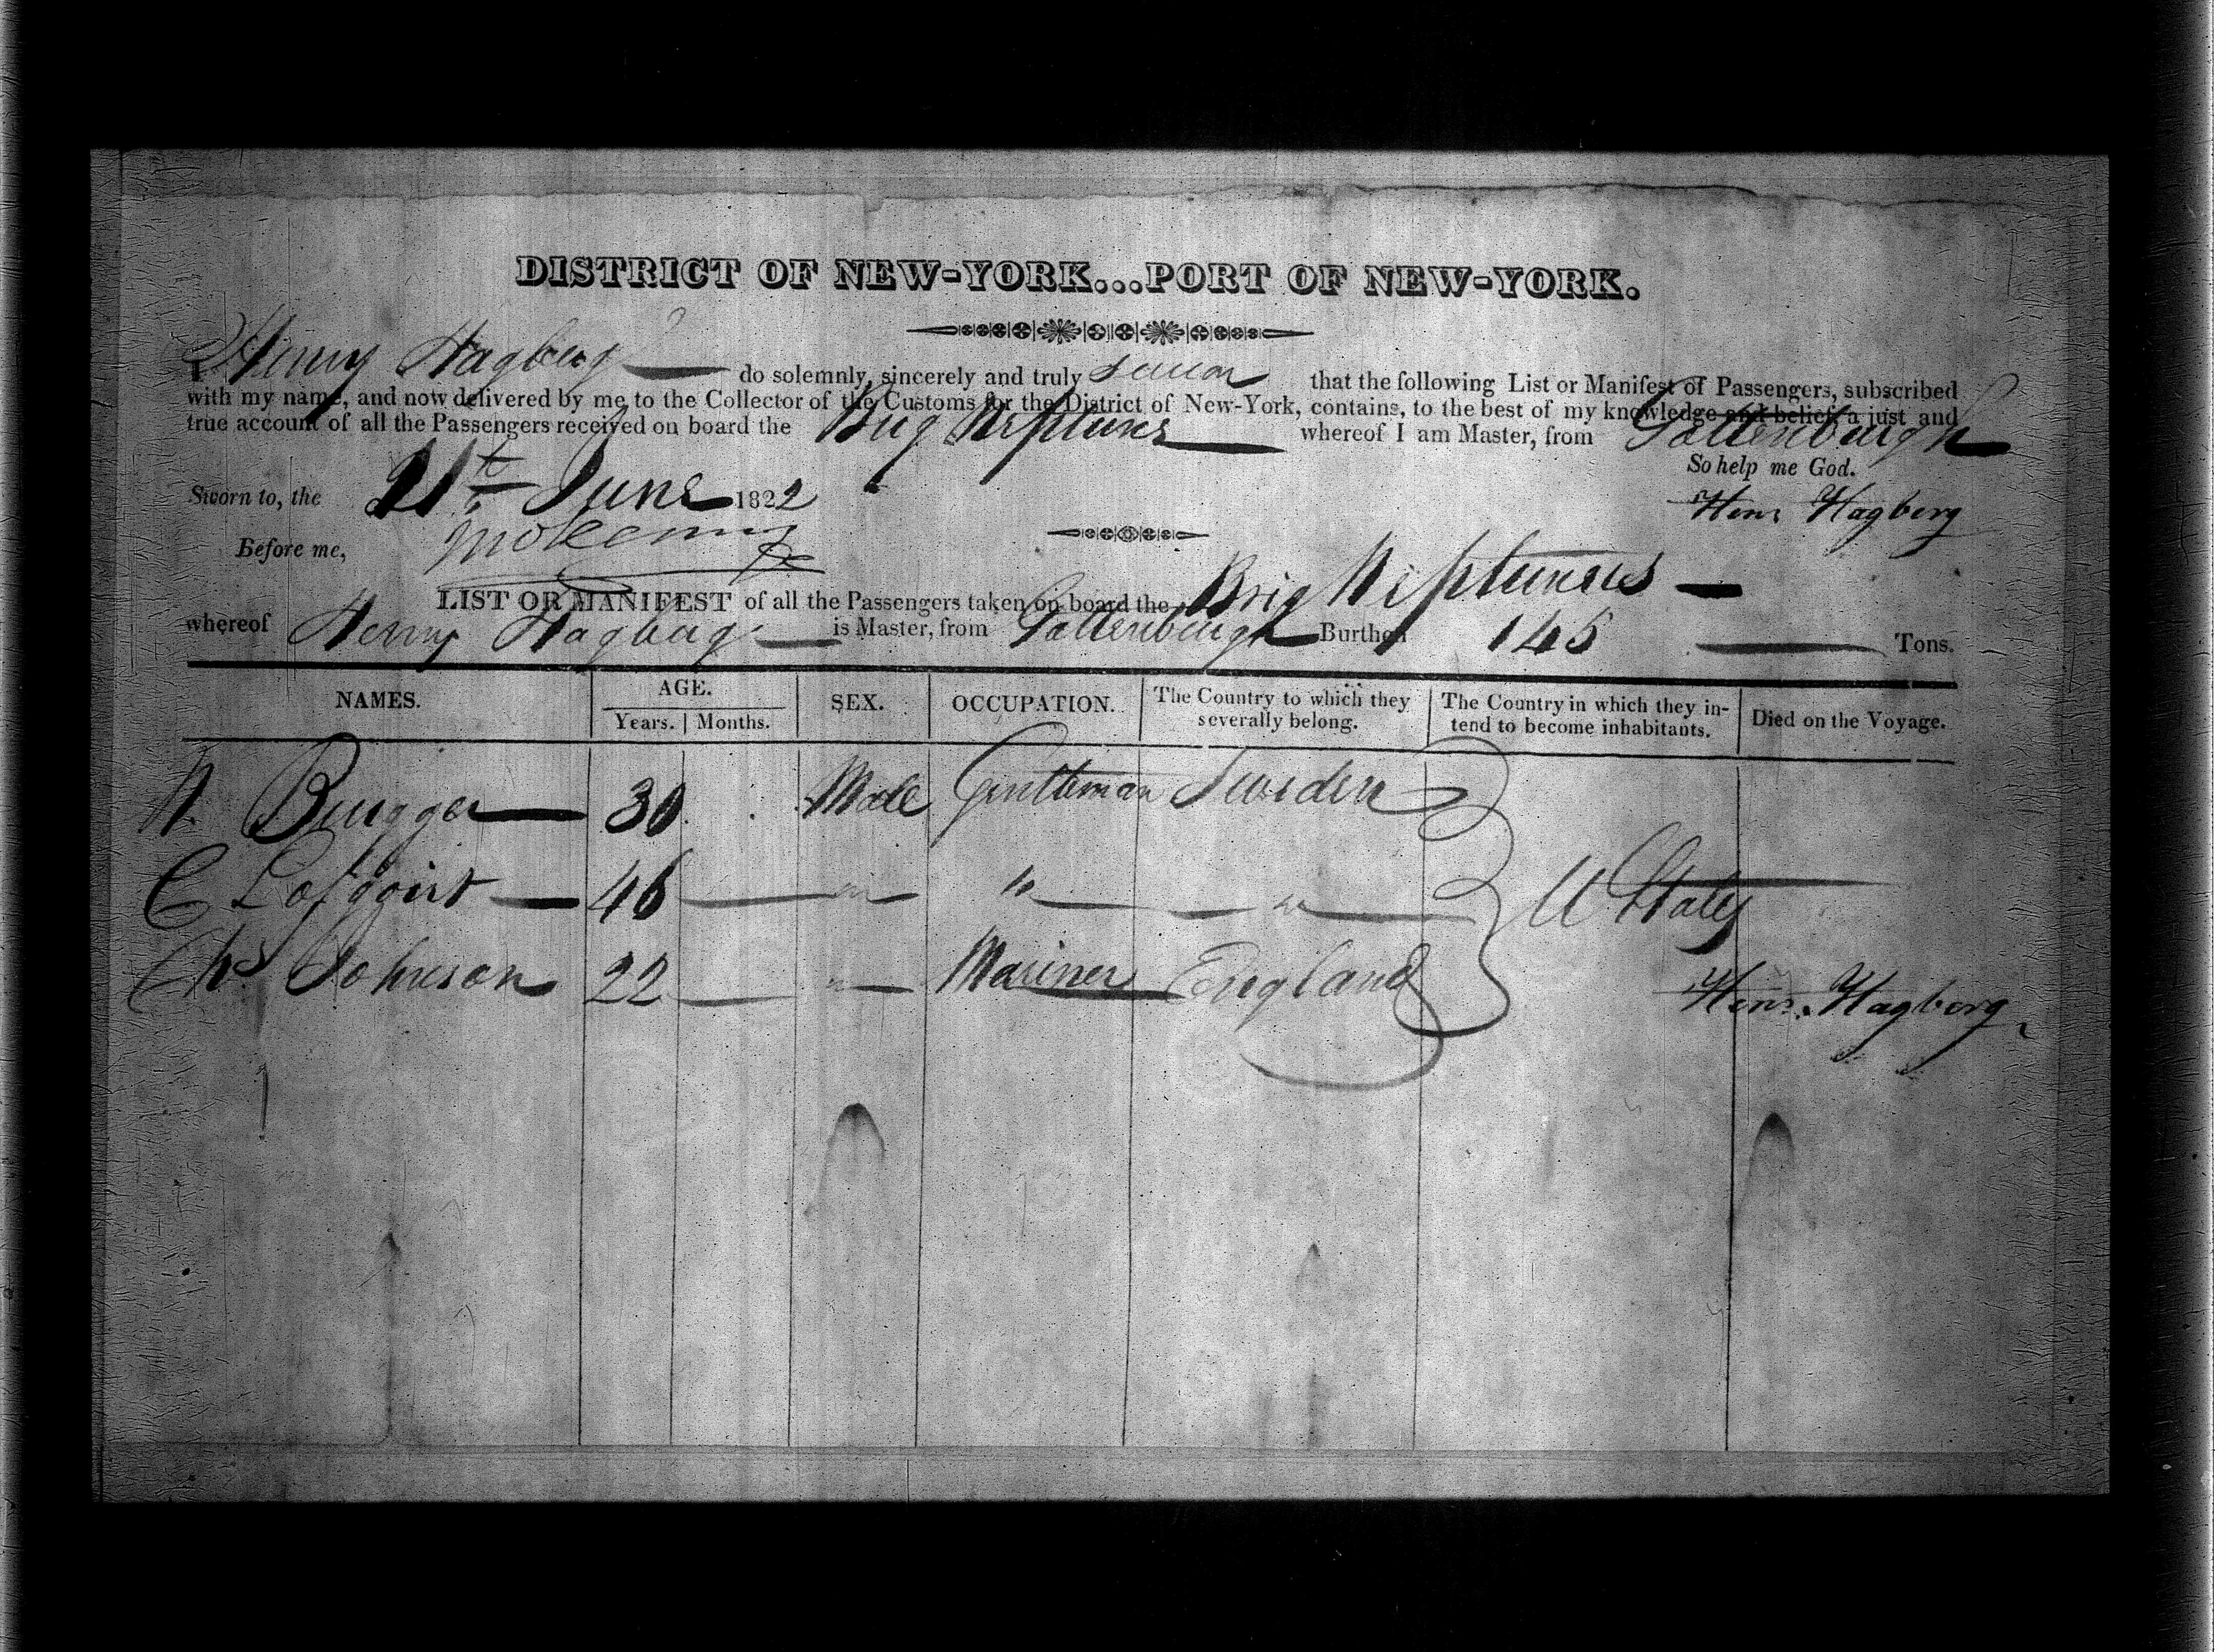 DISTRICT OF NEW-YORK...PORT OF NEW-YORK.
I Henry Hagberg do solemnly, sincerely and truly swear that the following List or Manifest of Passengers, subscribed
with my name, and now delivered by me to the Collector of the Customs for the District of New-York, contains, to the best of my knowledge and belief, a just and
true account of all the Passengers received on board the Brig Neptunus whereof I am Master, from Gottenburgh
So help me God.
Sworn to, the 21st June 1822
Henr Hagberg
Before me,
LIST OR MANIFEST of all the Passengers taken on board the Brig Neptunus
whereof Henry Hagberg is Master, from Gottenburgh Burthen 145 Tons.
NAMES. AGE. SEX. OCCUPATION. The Country to which they severally belong. The Country in which they intend to become inhabitants. Died on the Voyage.
Years. Months.
N. 30 Male Gentleman Sweden
C Lofqvist 46 " " "
U States
Chs Johnson 22 " Mariner England
Henr. Hagberg